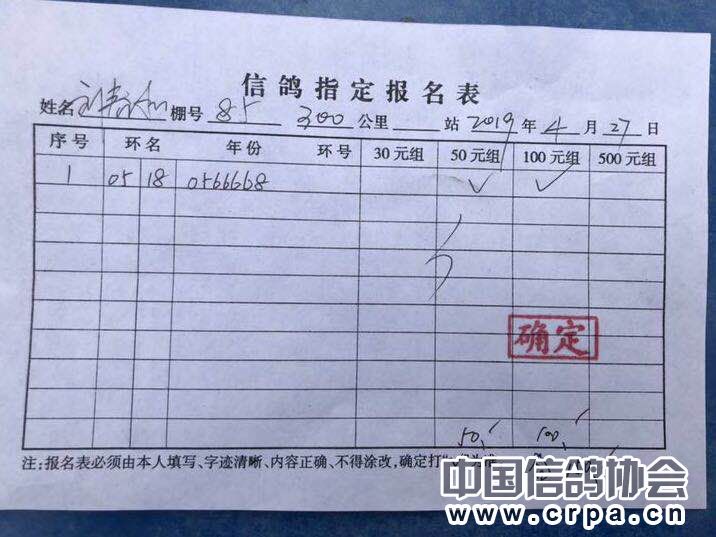 信鸽指定报名表
姓名 棚号 85 300 公里 站 2019 年 4 月 27 日
序号 环名 年份 环号 30元组 50元组 100元组 500元组
1 05 18 0566668 ✓ ✓
确定
50 100
注:报名表必须由本人填写、字迹清晰、内容正确、不得涂改,确定打"√"为准
中国信鸽协会
www.crpa.cn